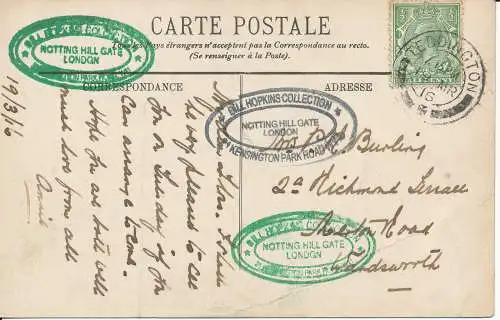 CARTE POSTALE
Tous les Pays étrangers n'acceptent pas la Correspondance au recto.
(Se renseigner à la Poste.)
CORRESPONDANCE
ADRESSE
BILL HOPKINS COLLECTION
NOTTING HILL GATE
LONDON
KENSINGTON PARK ROAD
BILL HOPKINS COLLECTION
NOTTING HILL GATE
LONDON
BILL HOPKINS COLLECTION
NOTTING HILL GATE
LONDON
TEDDINGTON
16
19/3/16
My dear
be very pleased to see
you on Sunday if you
can arrange to come.
Hope you are both well
much love from all
Annie
Burling
2a Richmond Terrace
Road
Wandsworth